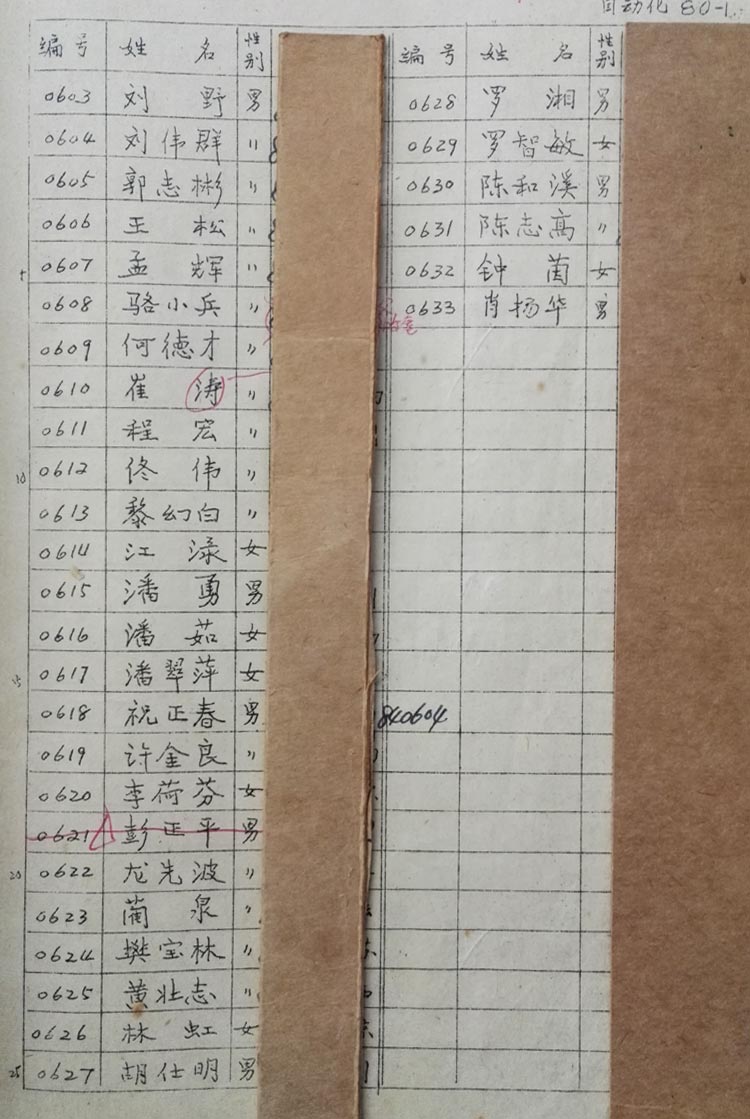 自动化 80-1
编号 姓名 性别 编号 姓名 性别
0603 刘野 男 0628 罗湘 男
0604 刘伟群 〃 0629 罗智敏 女
0605 郭志彬 〃 0630 陈和溪 男
0606 王松 〃 0631 陈志高 〃
5 0607 孟辉 〃 0632 钟茵 女
0608 骆小兵 〃 0633 肖扬华 男
0609 何德才 〃
0610 崔涛 〃
0611 程宏 〃
10 0612 佟伟 〃
0613 黎幻白 〃
0614 江渌 女
0615 潘勇 男
0616 潘茹 女
15 0617 潘翠萍 女
0618 祝正春 男 840604
0619 许金良 〃
0620 李荷芬 女
0621 彭正平 男
20 0622 龙先波 〃
0623 蔺泉 〃
0624 樊宝林 〃
0625 黄壮志 〃
0626 林虹 女
25 0627 胡仕明 男